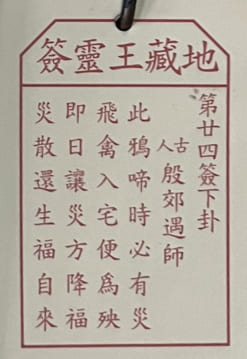 地藏王靈籤
第廿四籤下卦
古人 殷郊遇師
此鴉啼時必有災
飛禽入宅便為殃
即日讓災方降福
災散還生福自來